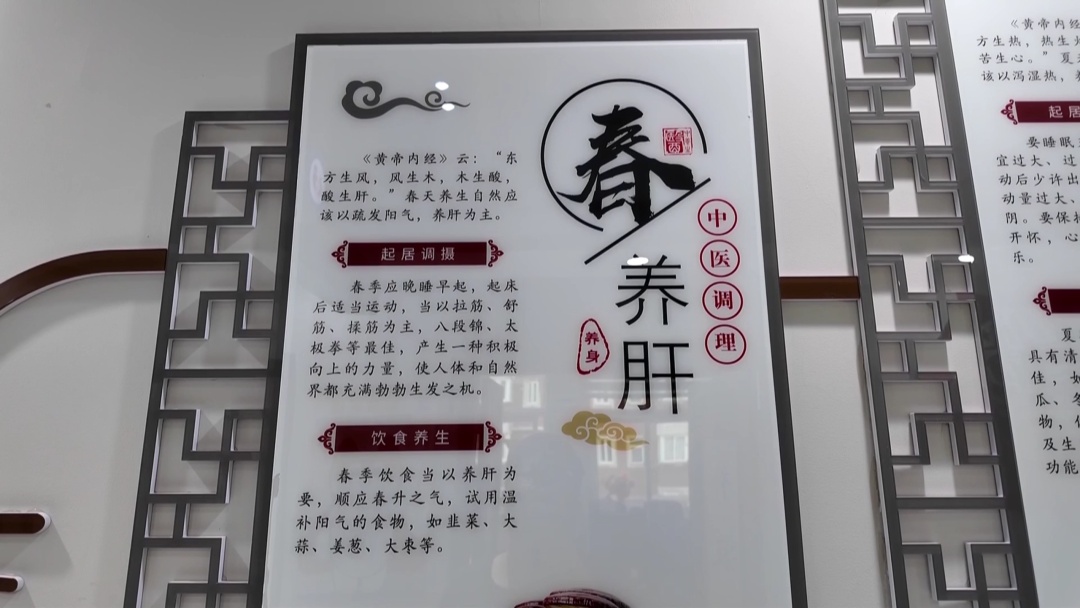 春
养肝
中医调理
养身
《黄帝内经》云：“东
方生风，风生木，木生酸，
酸生肝。”春天养生自然应
该以疏发阳气，养肝为主。
起居调摄
春季应晚睡早起，起床
后适当运动，当以拉筋、舒
筋、揉筋为主，八段锦、太
极拳等最佳，产生一种积极
向上的力量，使人体和自然
界都充满勃勃生发之机。
饮食养生
春季饮食当以养肝为
要，顺应春升之气，试用温
补阳气的食物，如韭菜、大
蒜、姜葱、大枣等。
《黄帝内经
方生热，热生
苦生心。”夏
该以泻湿热，
起居
要睡眠
宜过大、过
动后少许出
动量过大、
阴。要保持
开怀，心
乐。
夏
具有清
佳，如
瓜、冬
物，
及生
功能